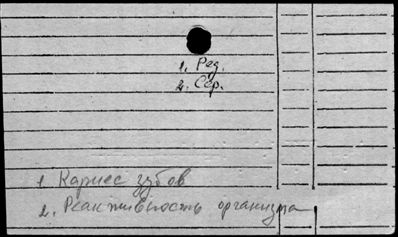 1. Ред.
2. Сер.
1 Кариес зубов
2. Реактивность организма